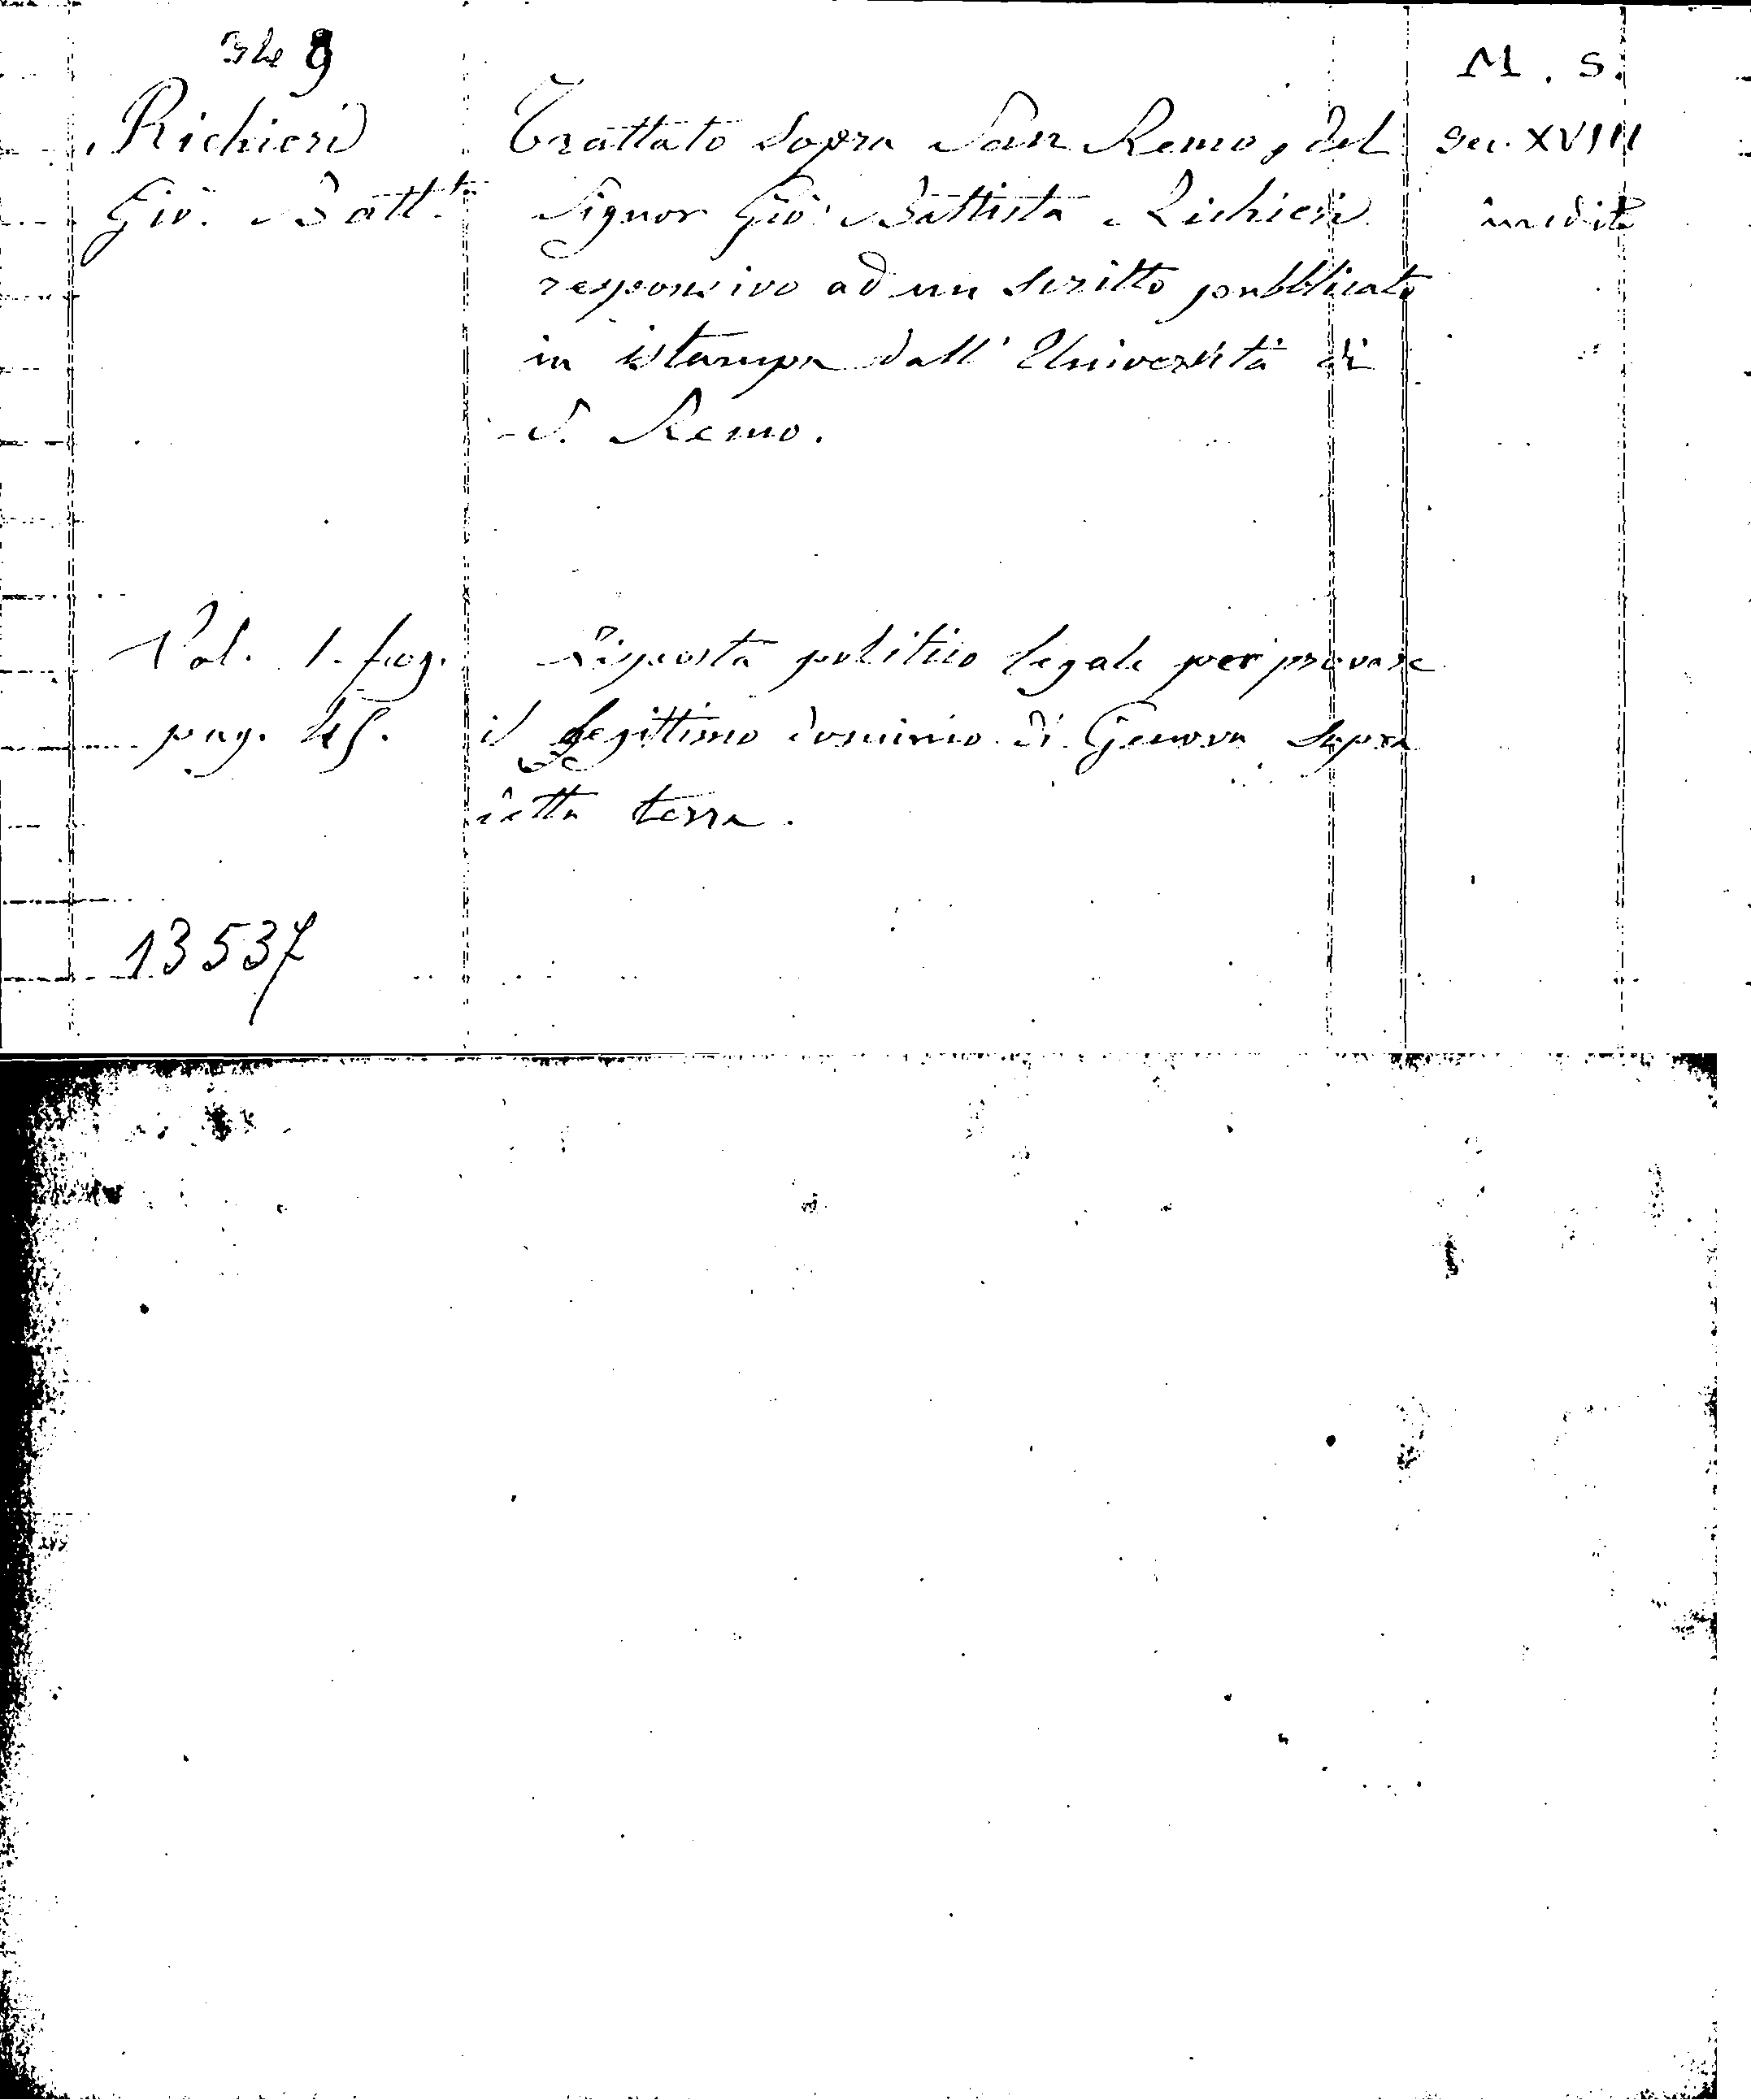 349
M. S.
Richieri Trattato sopra San Remo, del sec. XVIII
Gio. Batt.ta Signor Gio: Battista Richieri inedito
responsivo ad un scritto pubblicato
in istampa dall' Università di
S. Remo.
Vol. 1. fog. Risposta politico legale per provare
pag. 45. il legittimo dominio di Genova sopra
detta terra.
13537